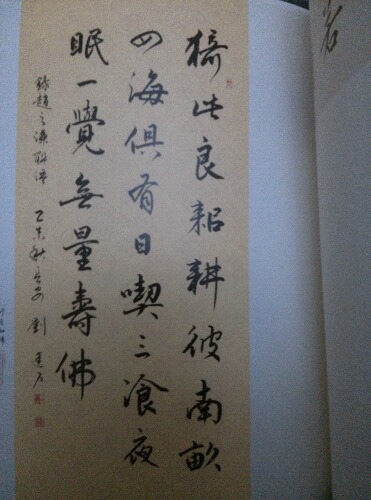 猗此良耜耕彼南畝
四海俱有日喫三飡夜
眠一覺無量壽佛
錄趙之謙聯語 乙未秋 劉